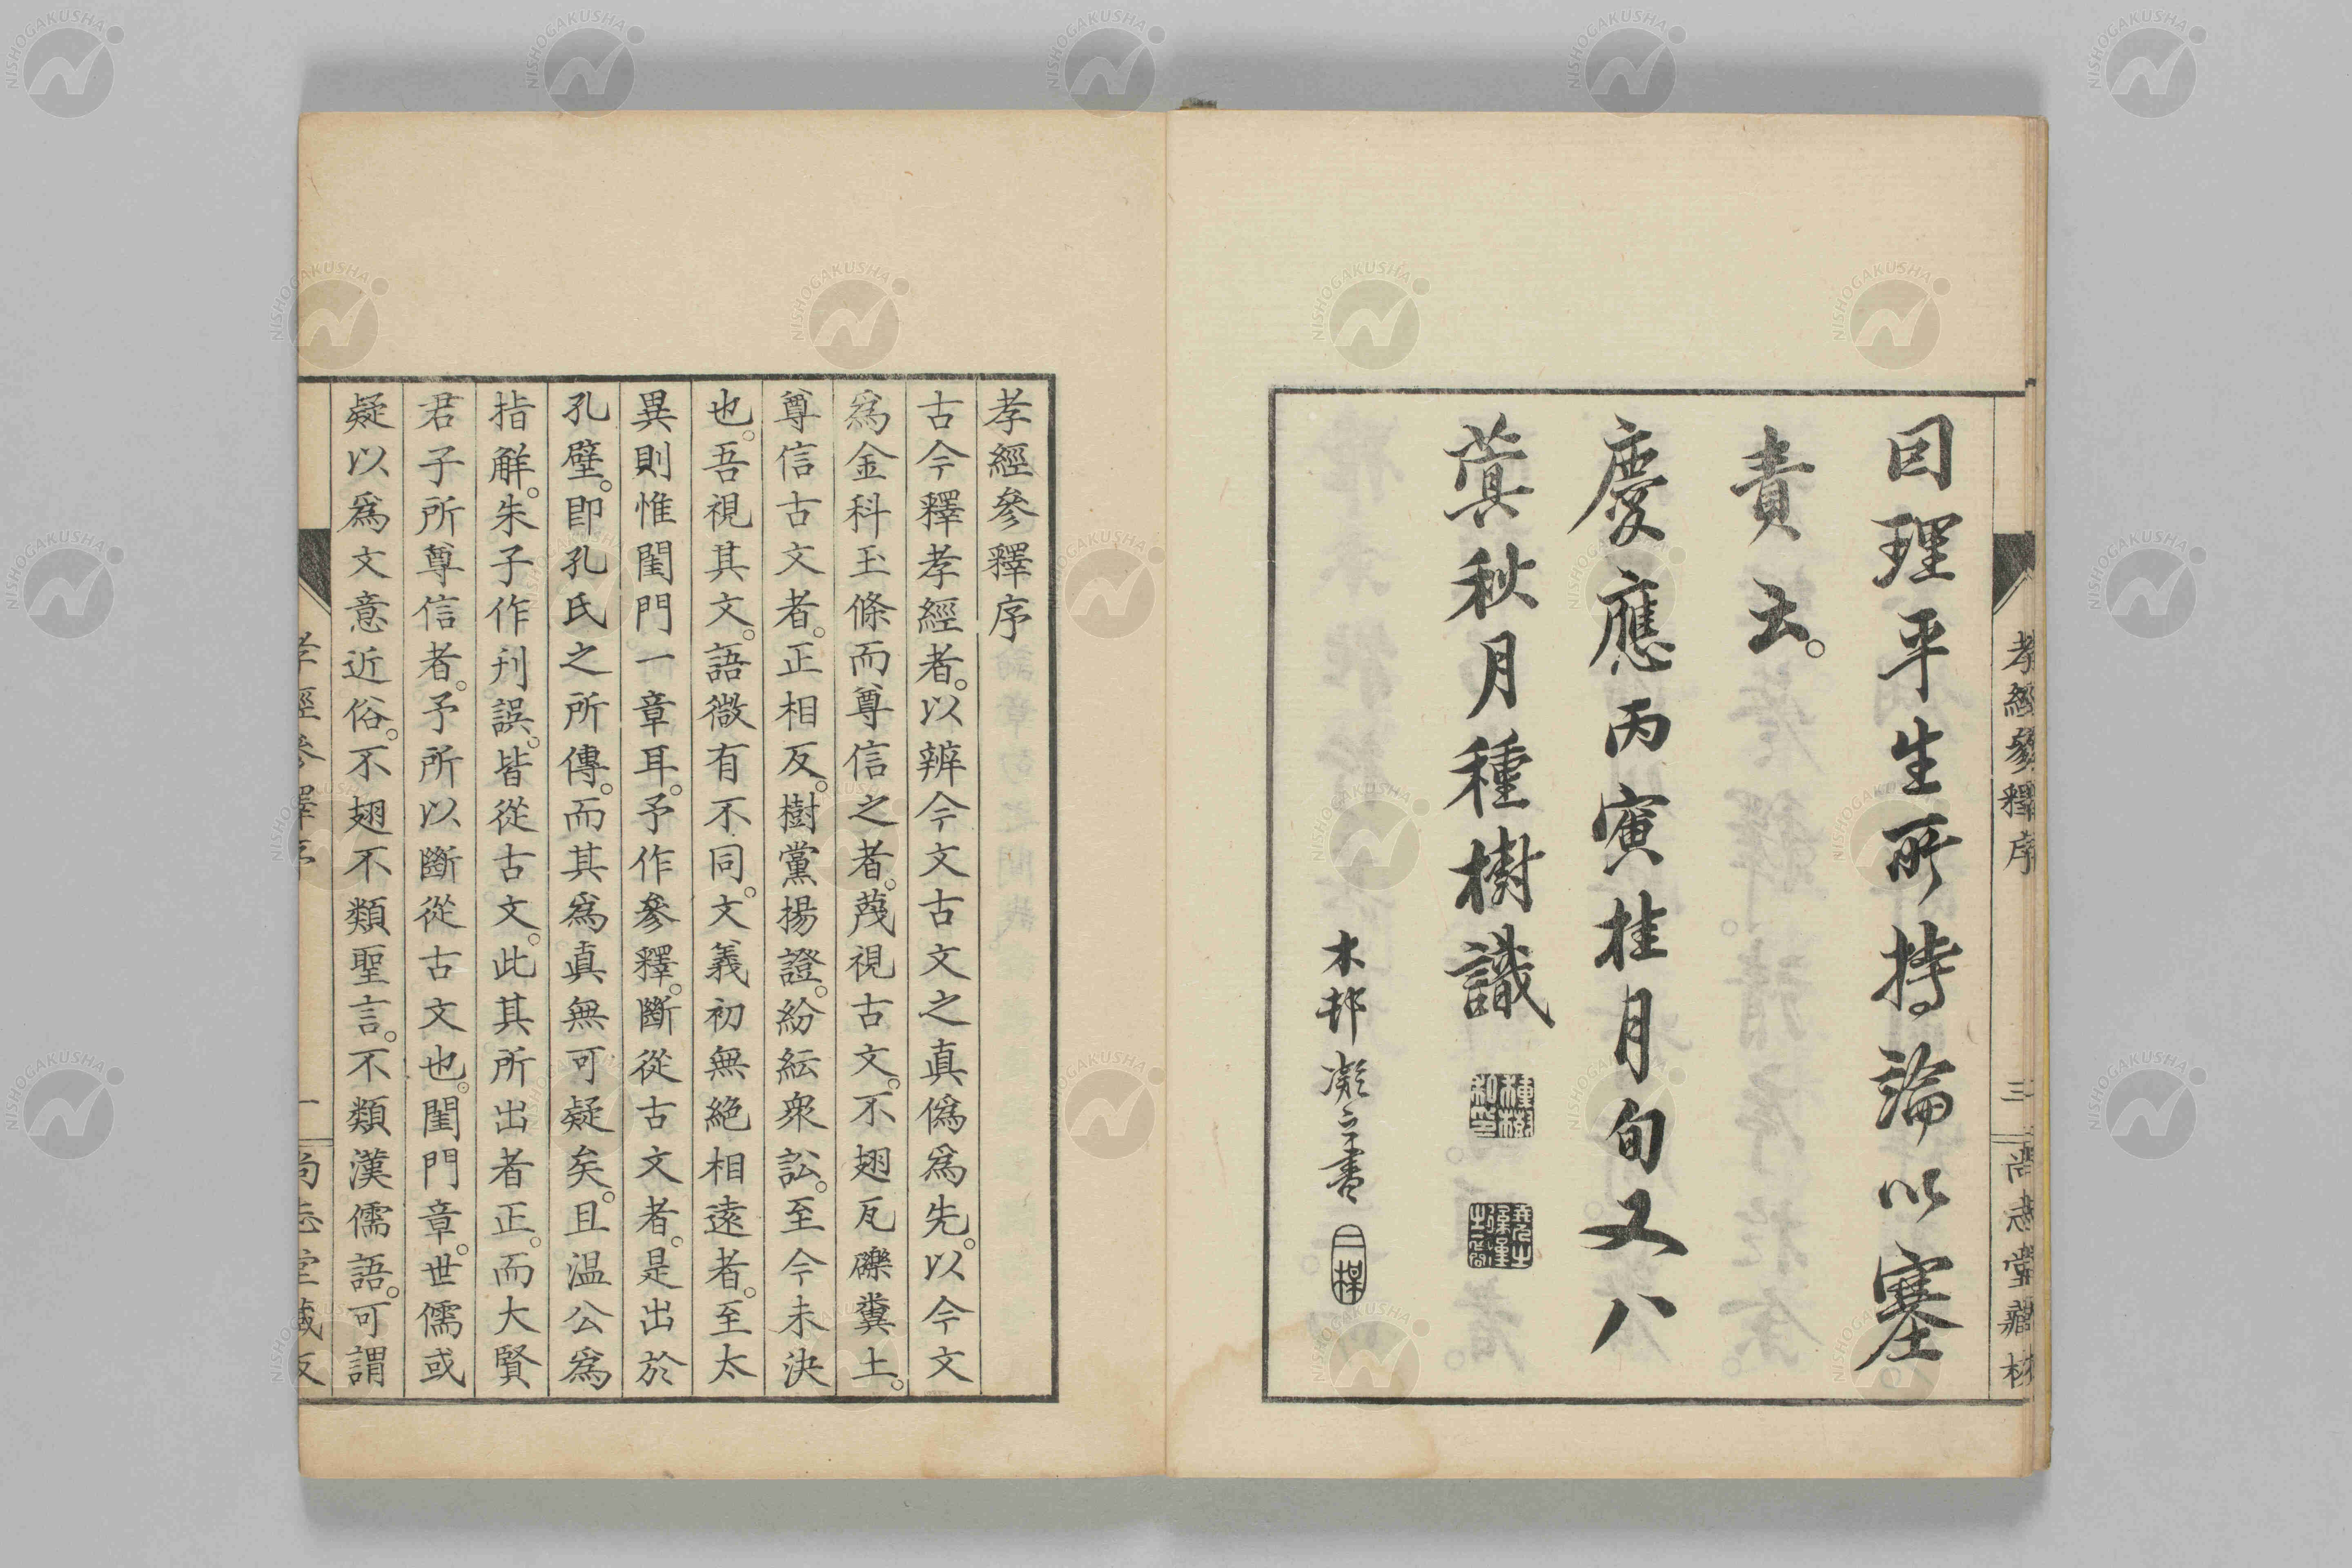 因理平生所持論以塞
責云。
慶應丙寅桂月旬又八
蓂秋月種樹識
木邨凝之書
孝經參釋序
三
尚志堂藏板
孝經參釋序
古今釋孝經者。以辨今文古文之真僞爲先。以今文
爲金科玉條而尊信之者。蔑視古文。不翅瓦礫糞土。
尊信古文者。正相反。樹黨揚證。紛紜衆訟。至今未決
也。吾視其文。語微有不同。文義初無絶相遠者。至太
異則惟閨門一章耳。予作參釋。斷從古文者。是出於
孔壁。即孔氏之所傳。而其爲真無可疑矣。且温公爲
指解。朱子作刊誤。皆從古文。此其所出者正。而大賢
君子所尊信者。予所以斷從古文也。閨門章。世儒或
疑以爲文意近俗。不翅不類聖言。不類漢儒語。可謂
孝經參釋序
一
尚志堂藏板
NISHOGAKUSHA